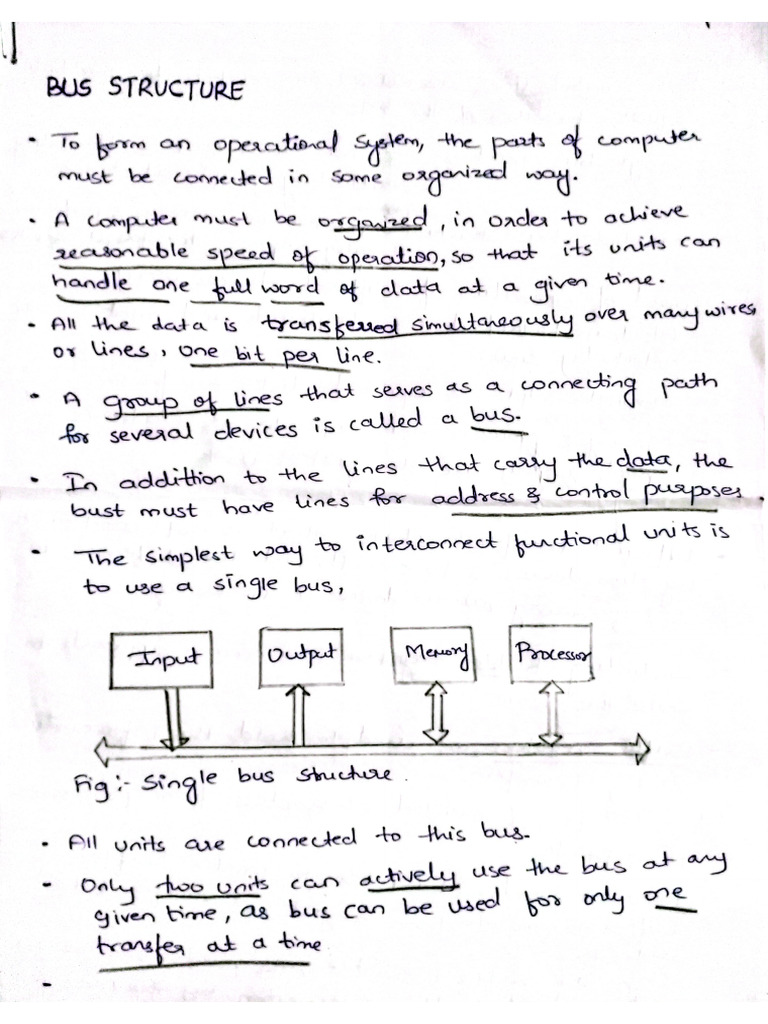 BUS STRUCTURE
• To form an operational system, the parts of computer
must be connected in some organized way.
• A computer must be organized, in order to achieve
reasonable speed of operation, so that its units can
handle one full word of data at a given time.
• All the data is transferred simultaneously over many wires
or lines, one bit per line.
• A group of lines that serves as a connecting path
for several devices is called a bus.
• In addittion to the lines that carry the data, the
bust must have lines for address & control purposes.
• The simplest way to interconnect functional units is
to use a single bus,
Input Output Memory Processor
Fig :- Single bus structure.
• All units are connected to this bus.
• Only two units can actively use the bus at any
given time, as bus can be used for only one
transfer at a time
-